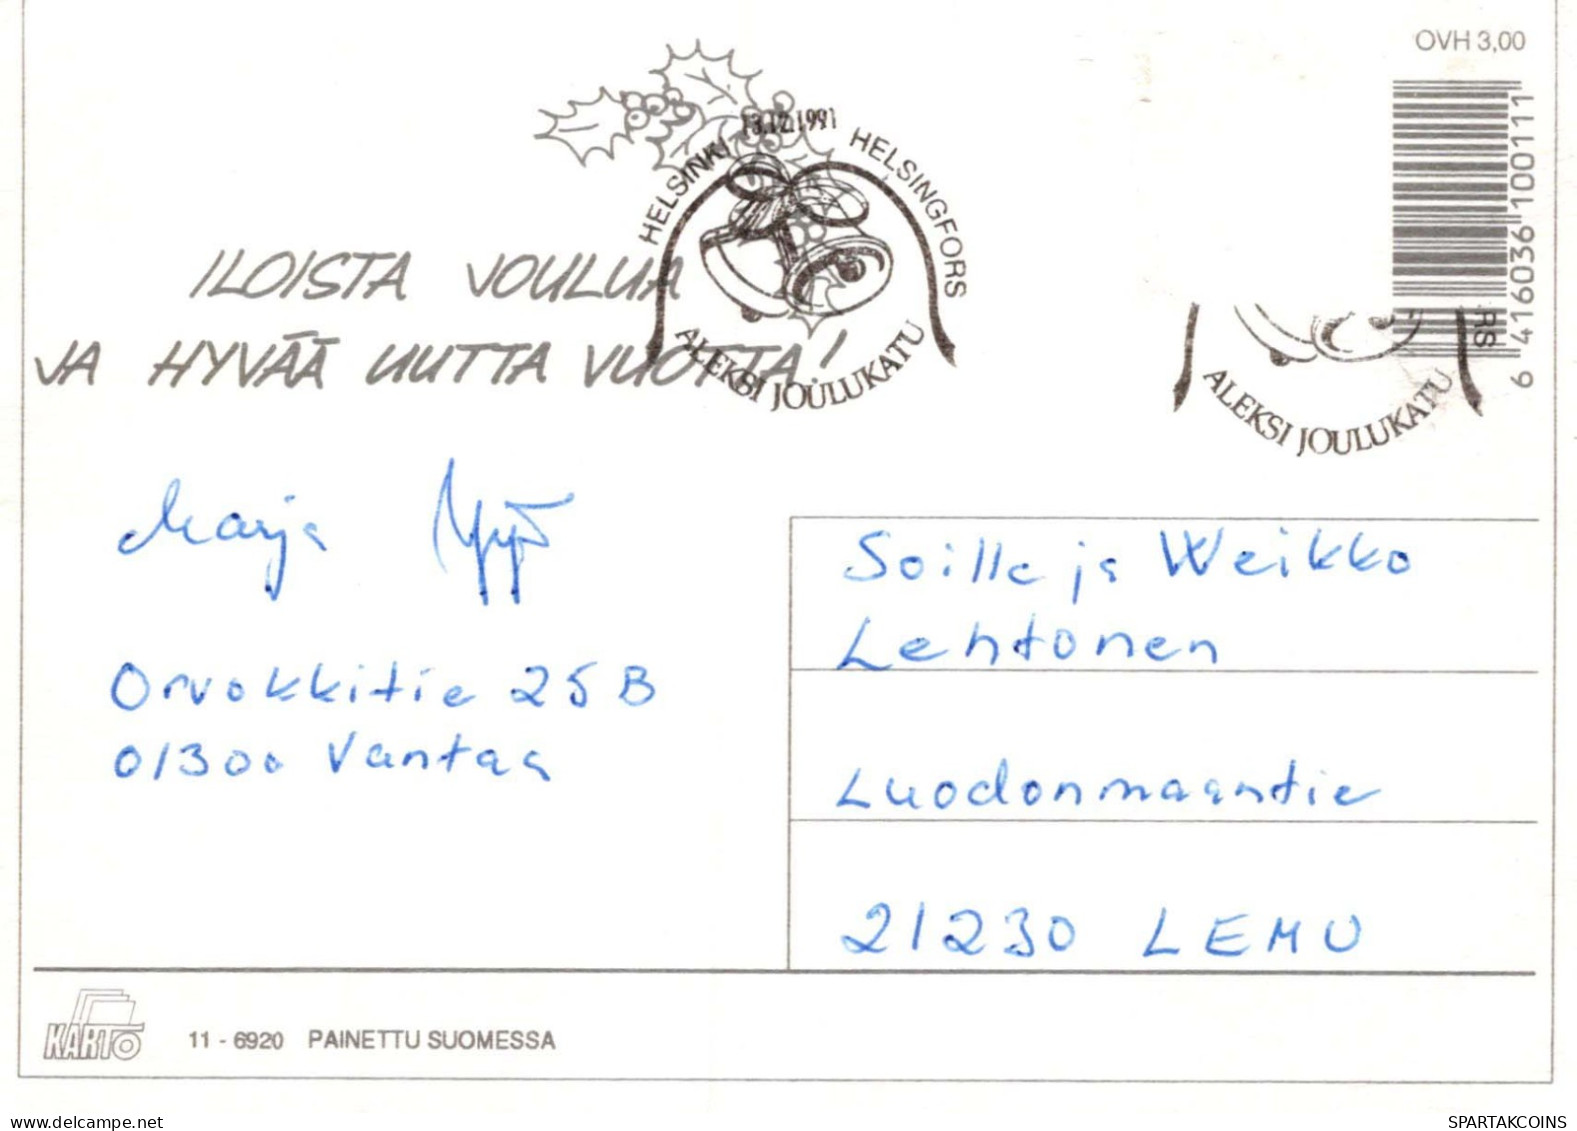 OVH 3,00
6 416036 100111
HELSINKI 13.12.1991 HELSINGFORS
ALEKSI JOULUKATU
RS
ALEKSI JOULUKATU
ILOISTA JOULUA
JA HYVÄÄ UUTTA VUOTTA!
Marja
Orvokkitie 25 B
01300 Vantaa
Soille ja Weikko
Lehtonen
Luodonmaantie
21230 LEMU
KARTO
11 - 6920 PAINETTU SUOMESSA
www.delcampe.net
SPARTAKCOINS